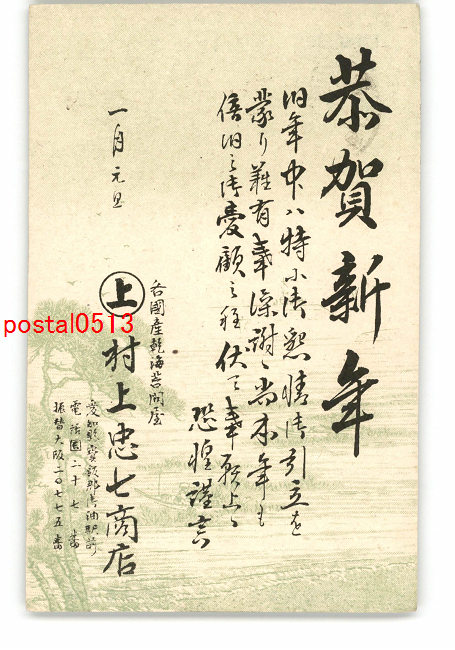 恭賀新年
旧年中ハ特ニ御懇情御引立を
蒙り難有奉深謝候尚本年も
倍旧之御愛顧之程伏て奉願上候
恐惶謹言
一月元旦
各國産乾海苔問屋
上 村上忠七商店
愛知縣寶飯郡御油駅前
電話國二十七番
振替大阪二〇七七五番
postal0513